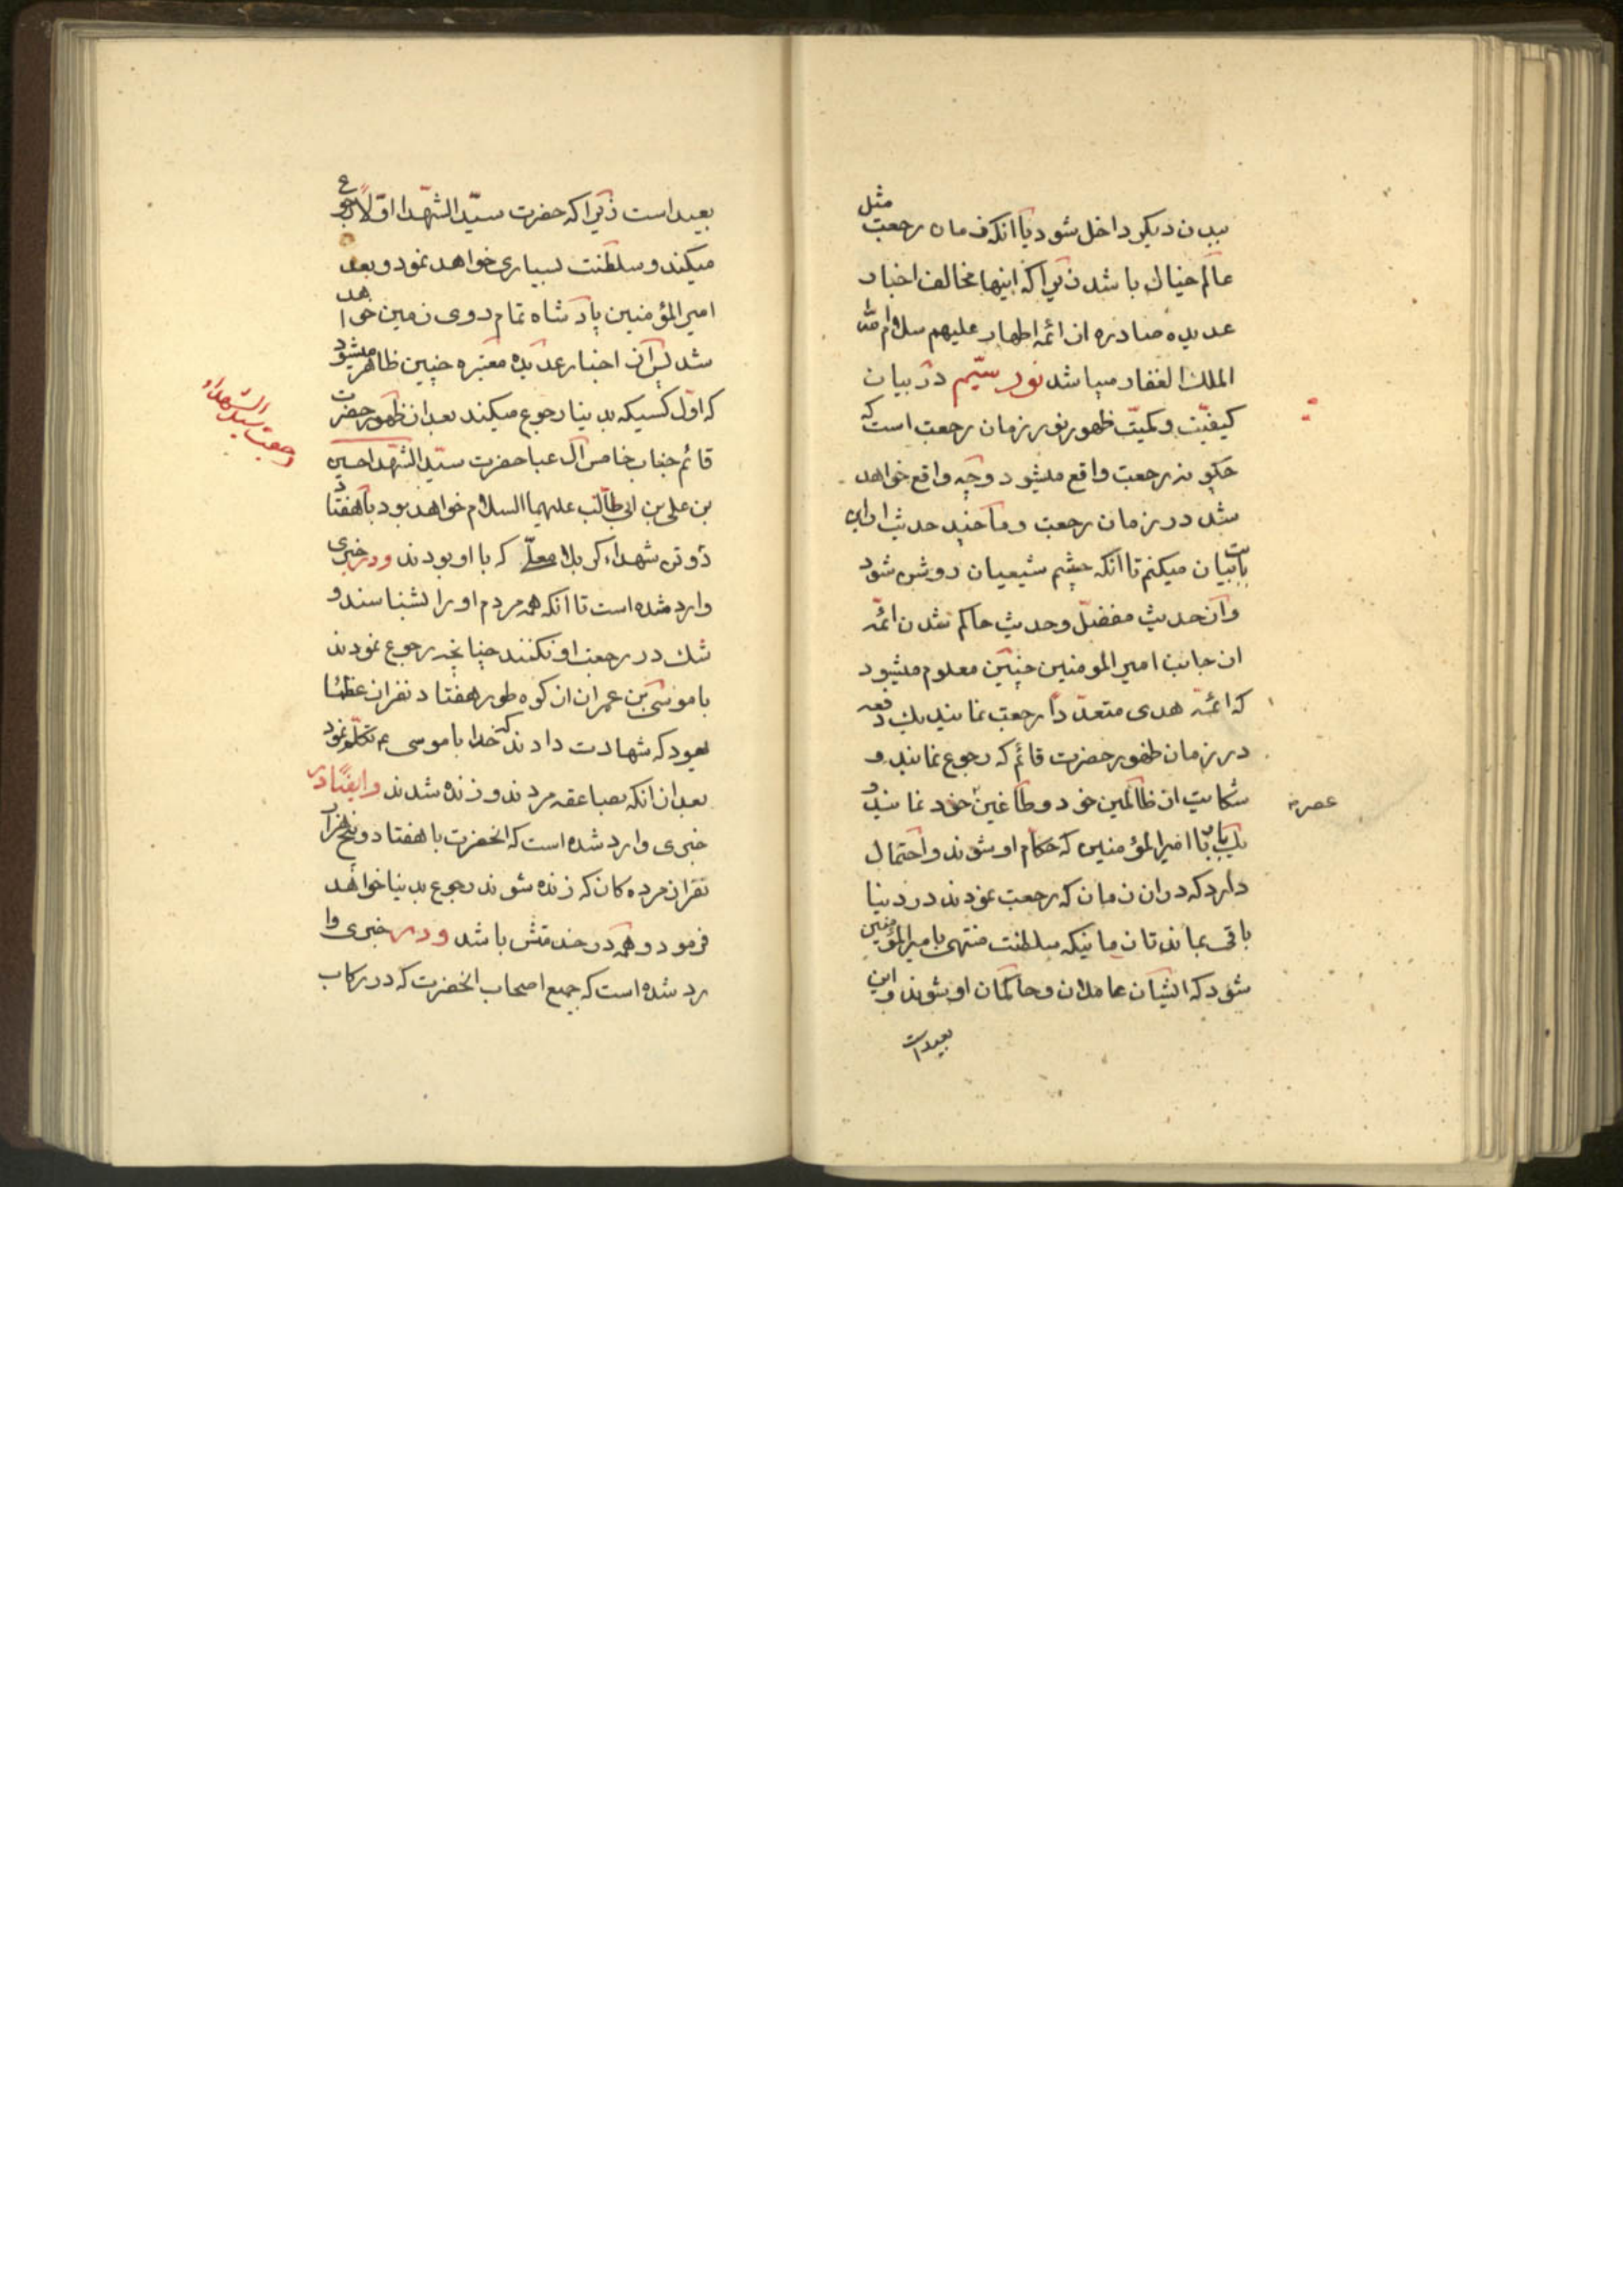 ببدن دیکر داخل شود یا آنکه زمان رجعت مثل
عالم خیال باشد زیرا که اینها مخالف اخبار
عدیده صادره از ائمه اطهار علیهم سلام الله
الملك الغفار میباشد نور سیّم در بیان
کیفیّت و کمیّت ظهور نور زمان رجعت است که
چکونه رجعت واقع میشود و چه واقع خواهد
شد در زمان رجعت و ما چند حدیث از این
بابت بیان میکنم تا آنکه چشم شیعیان روشن شود
و از حدیث مفضّل و حدیث حاکم شدن ائمه
از جانب امیر المومنین چنین معلوم میشود
که ائمّه هدی متعدّداً رجعت نمایند یك دفعه
در زمان ظهور حضرت قائم که رجوع نمایند و
شکایت از ظالمین خود و طاغین خود نمایند و
یك بار با امیر المؤمنین که حکّام او شوند و احتمال
دارد که در ان زمان که رجعت نمودند در دنیا
باقی بمانند تا زمانیکه سلطنت منتهی بامیر المؤمنین
شود که ایشان عاملان و حاکمان او شوند و این
بعید است
عصر
بعید است زیرا که حضرت سیّد الشهّدا اوّلاً رجوع
میکند و سلطنت بسیاری خواهد نمود و بعد
امیر المؤمنین پادشاه تمام روی زمین خواهد
شد پس از اخبار عدیده معتبره چنین ظاهر میشود
که اوّل کسیکه بدینا رجوع میکند بعد از ظهور حضرت
قائم جناب خامس آل عبا حضرت سیّد الشهّدا حسین
بن علی بن ابی طالب علیهما السلام خواهد بود با هفتاد
دو تن شهداء کربلا معلّی که با او بودند و در خبری
وارد شده است تا آنکه همه مردم او را بشناسند و
شك در رجعت او نکنند چنانچه رجوع نمودند
با موسی بن عمران از کوه طور هفتاد نفر از عظماء
یهود که شهادت دادند که خدا با موسی ع تکلّم نمود
بعد از انکه بصاعقه مردند و زنده شدند و ایضًا در
خبری وارد شده است که انحضرت با هفتاد و پنج هزار
نفر از مرده کان که زنده شوند رجوع بدینا خواهد
فرمود و همه در خدمتش باشد و در خبری وا
رد شده است که جمیع اصحاب انحضرت که در رکاب
رجعت سید الشهداء